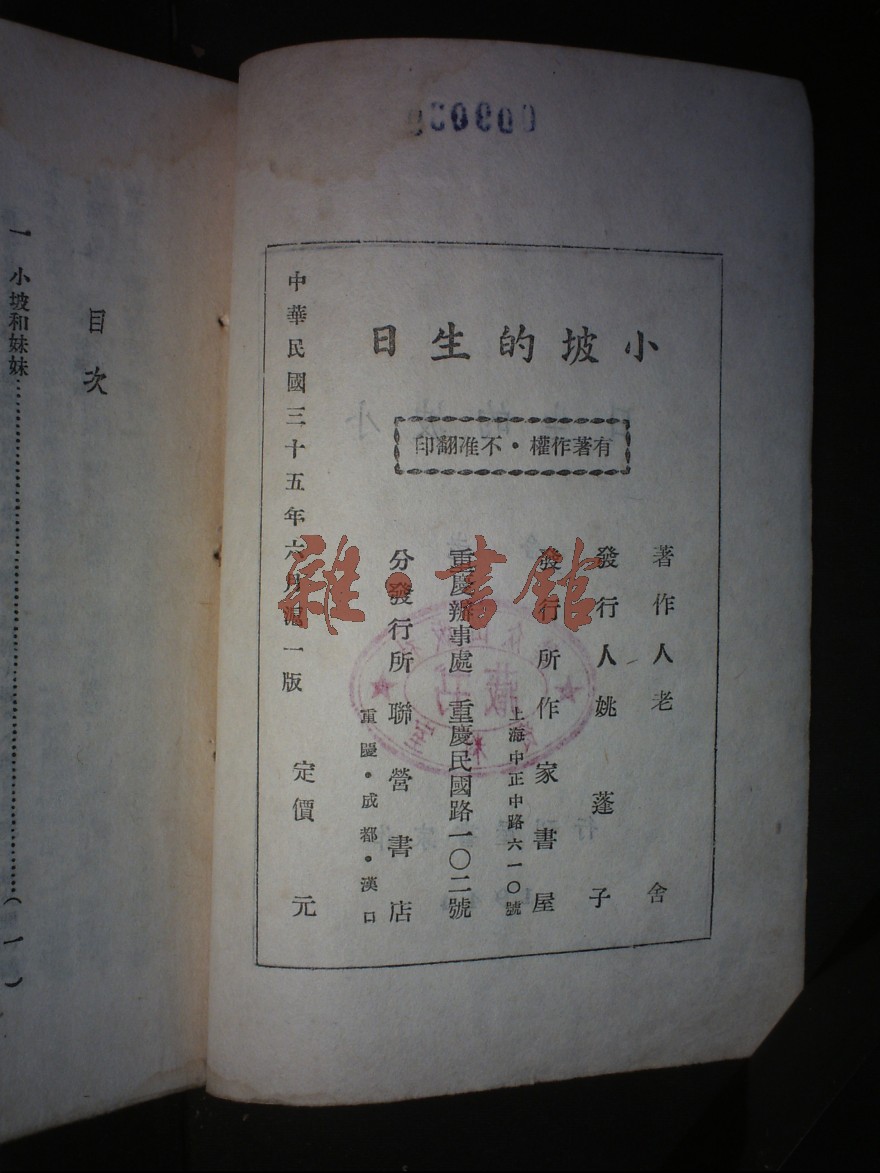 小坡的生日
有著作權·不准翻印
著作人老舍
發行人姚蓬子
發行所作家書屋
上海中正中路六一〇號
重慶辦事處 重慶民國路一〇二號
分發行所聯營書店
重慶·成都·漢口
中華民國三十五年六月滬一版 定價 元
目次
一 小坡和妹妹……………………………………(一)
雜·書館
藏书